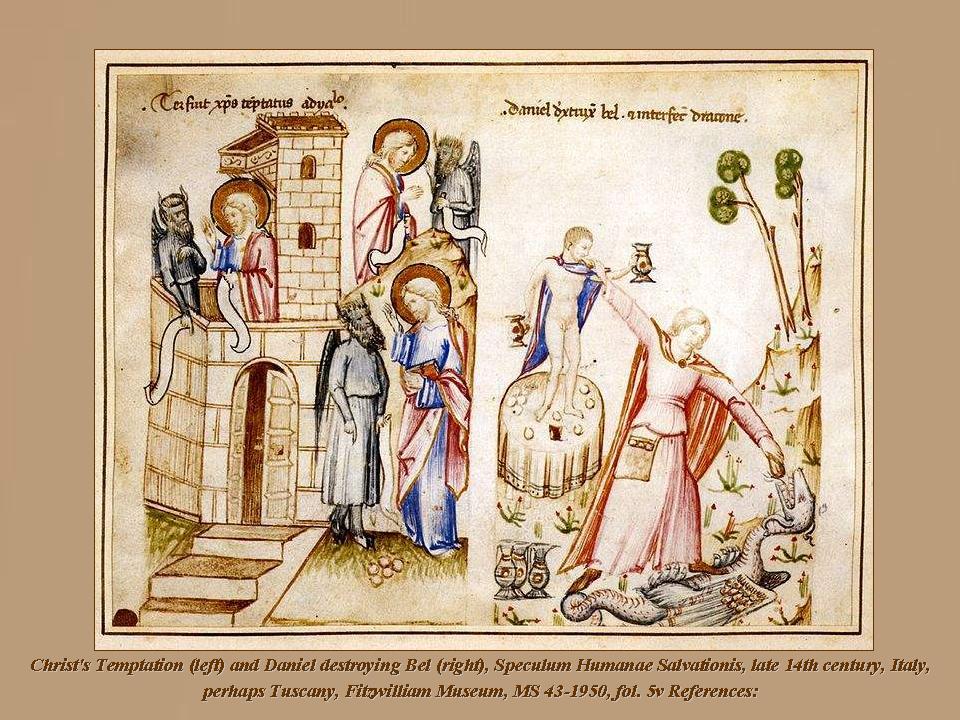 Ter fuit xp̄s tēptatus a dyalo.
Daniel dx̄trux̄ bel . ⁊ interfec̄ dracone.
Christ's Temptation (left) and Daniel destroying Bel (right), Speculum Humanae Salvationis, late 14th century, Italy,
perhaps Tuscany, Fitzwilliam Museum, MS 43-1950, fol. 5v References: